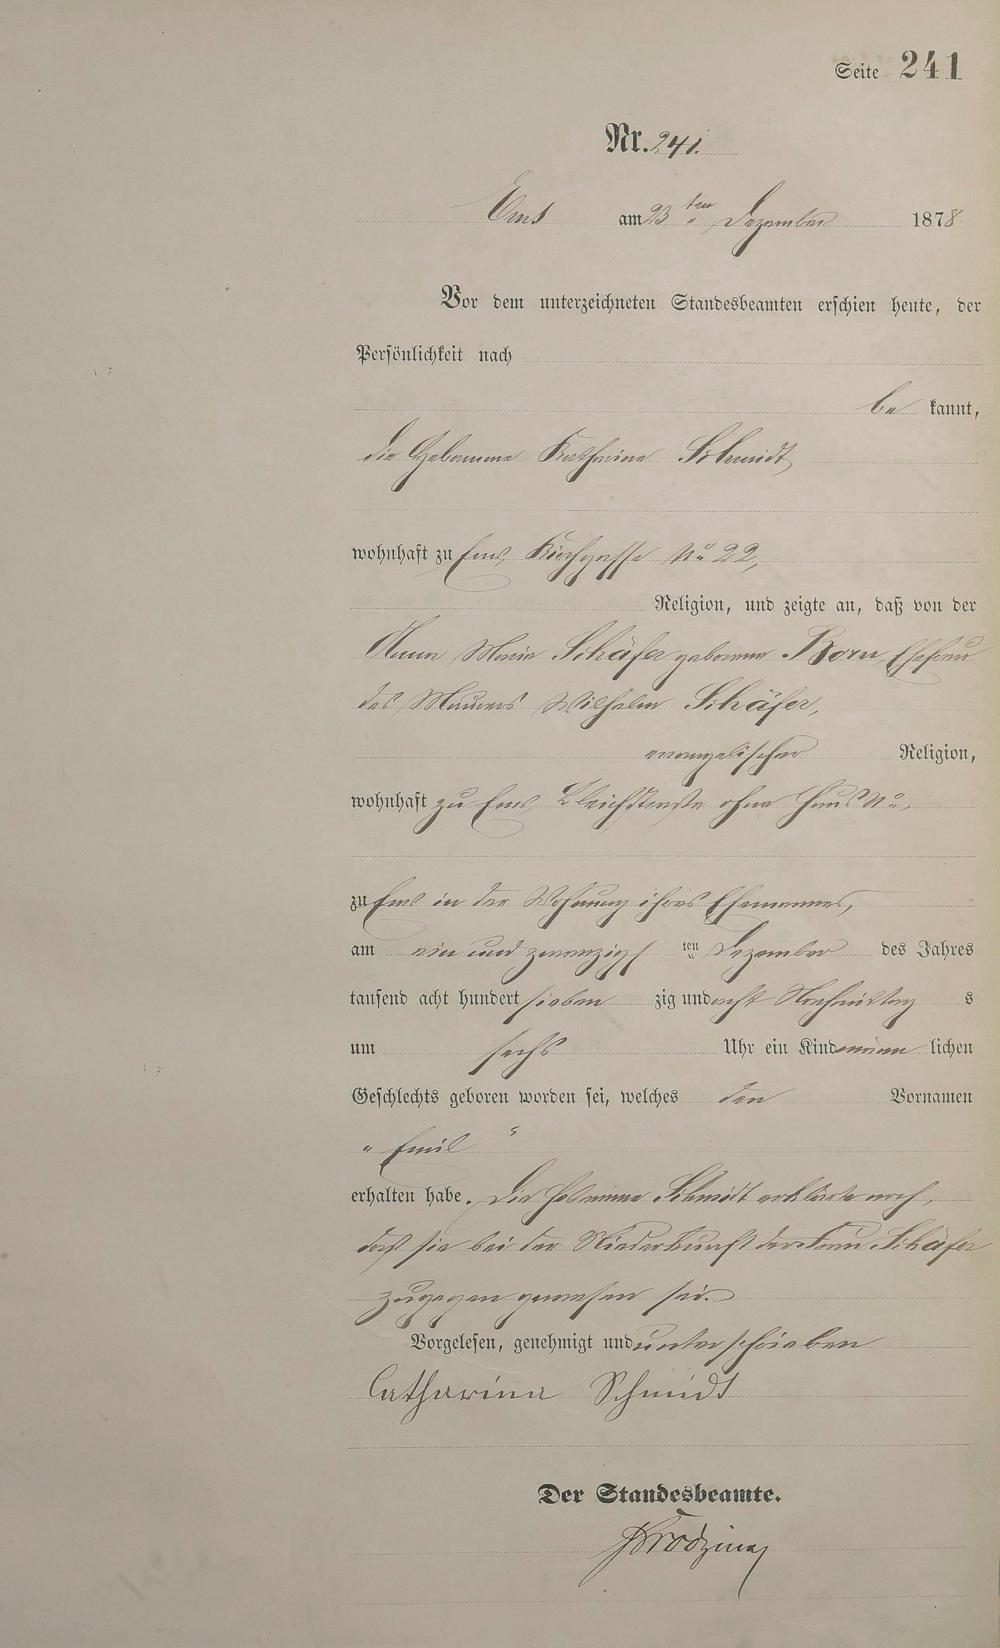 Seite 241
Nr. 241.
Ems am 23ten Dezember 1878
Vor dem unterzeichneten Standesbeamten erschien heute, der
Persönlichkeit nach
be kannt,
die Hebamme Katharina Schmidt
wohnhaft zu Ems, Kirchgasse No 22,
Religion, und zeigte an, daß von der
Anna Maria Schäfer geborene Born, Ehefrau
des Maurers Wilhelm Schäfer,
evangelischer Religion,
wohnhaft zu Ems, Bleichstraße ohne Haus No,
zu Ems in der Wohnung ihres Ehemannes,
am ein und zwanzigsten Dezember des Jahres
tausend acht hundert sieben zig und acht Nachmittag s
um sechs Uhr ein Kind männ lichen
Geschlechts geboren worden sei, welches den Vornamen
„Emil“
erhalten habe. Die Hebamme Schmidt erklärte noch,
daß sie bei der Niederkunft der Frau Schäfer
zugegen gewesen sei.
Vorgelesen, genehmigt und unterschrieben
Catharina Schmidt
Der Standesbeamte.